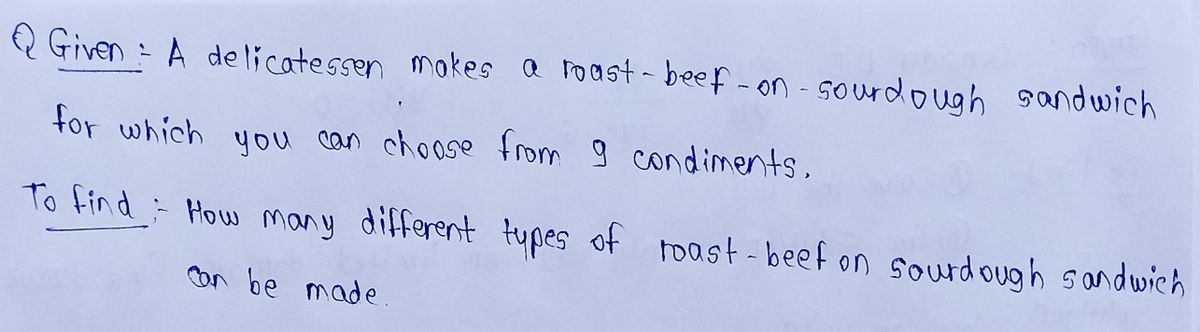 Q Given :- A delicatessen makes a roast-beef-on-sourdough sandwich
for which you can choose from 9 condiments.
To find :- How many different types of roast-beef on sourdough sandwich
can be made.